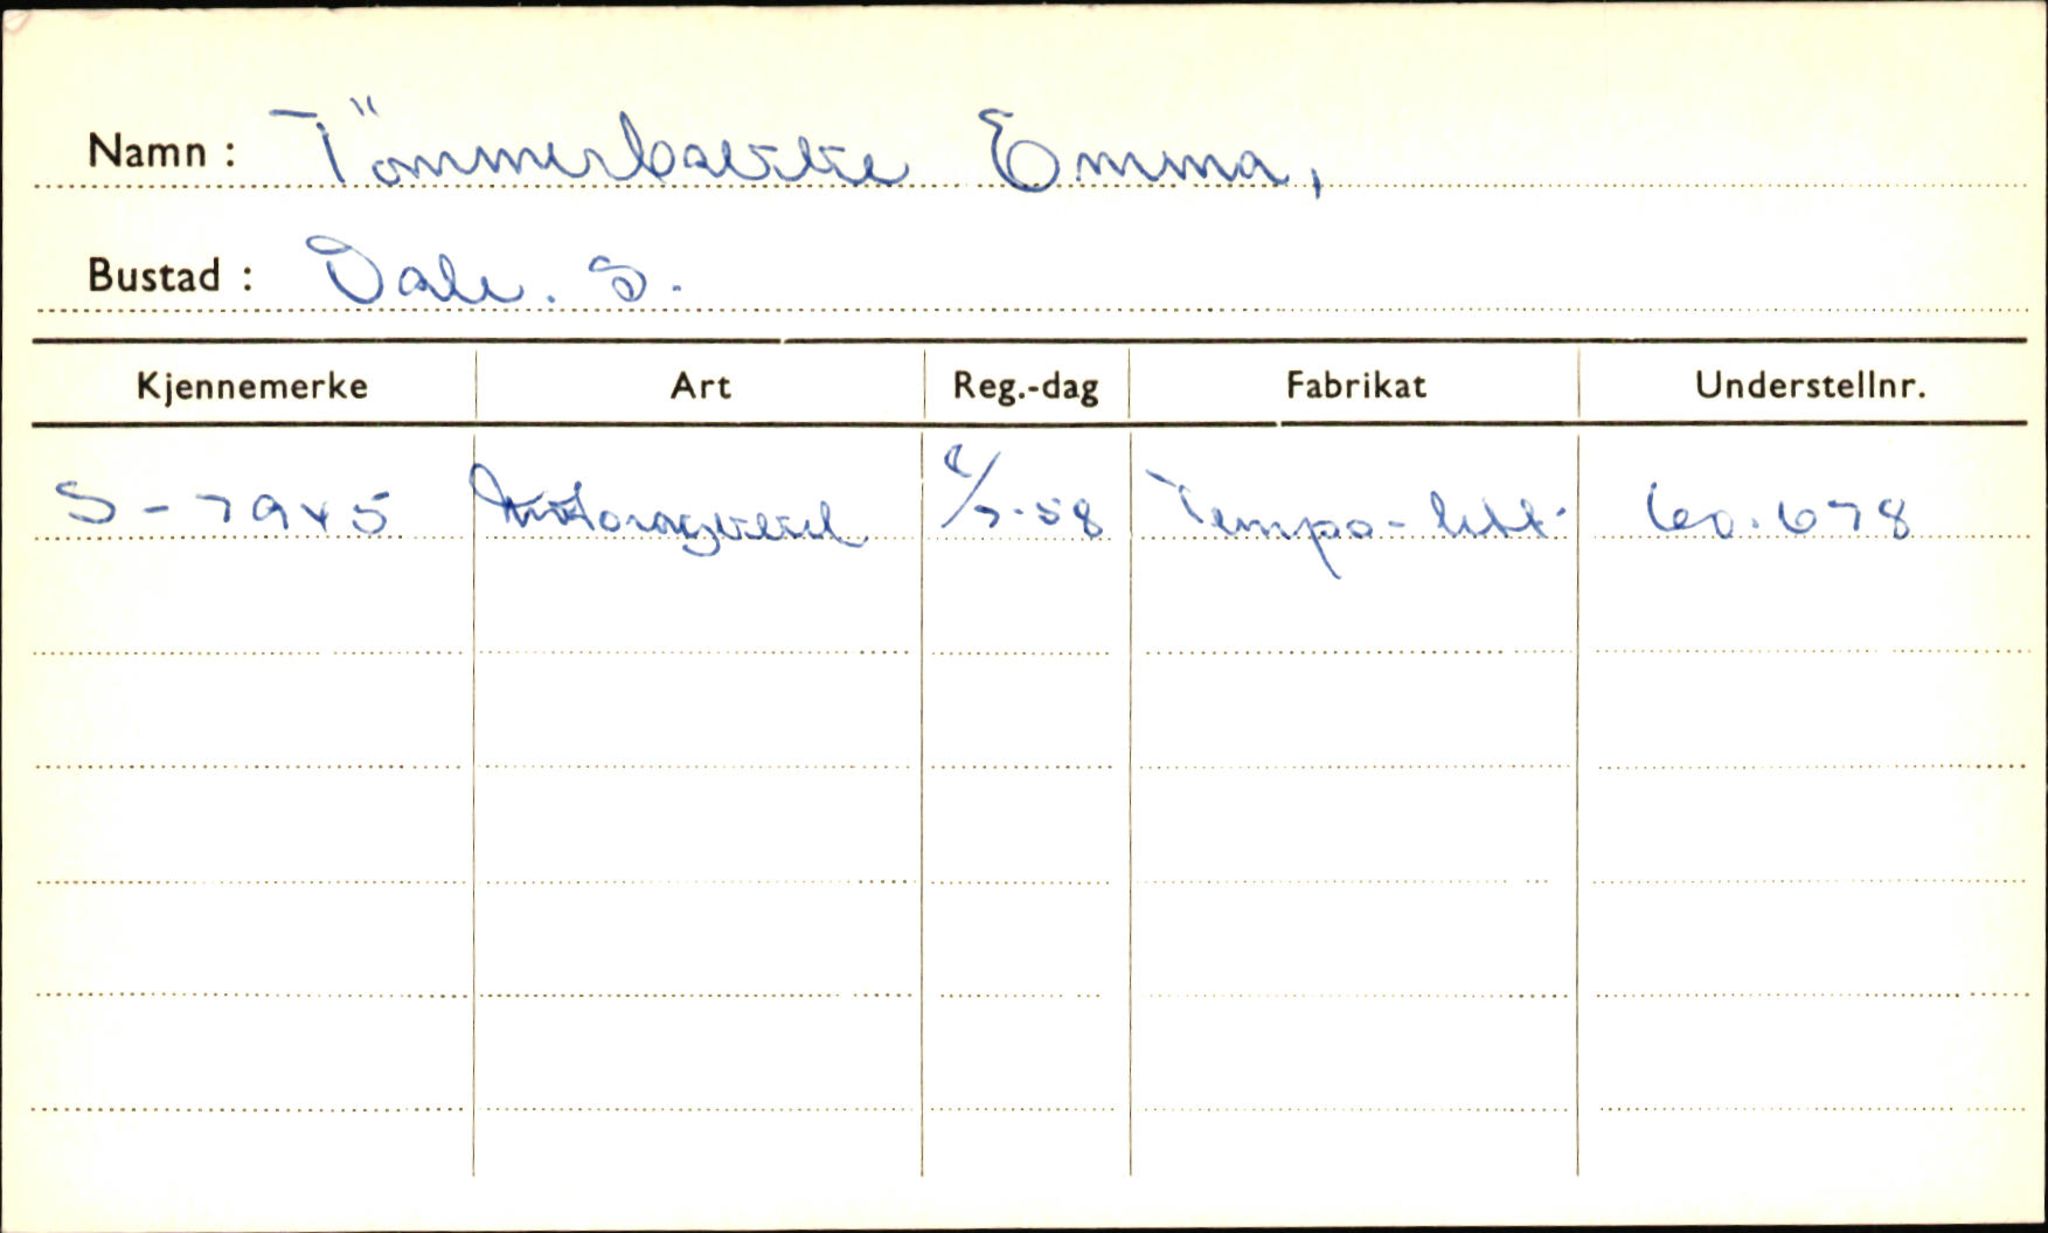 Namn : Tömmerbakke Emma,
Bustad : Dale. S.
Kjennemerke Art Reg.-dag Fabrikat Understellnr.
S-7945 8/7-58 Tempo-lett. 60.678